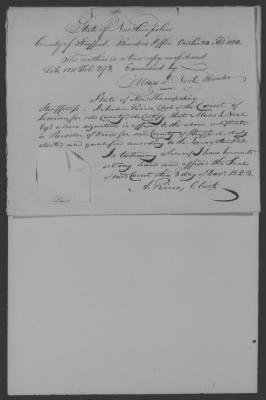 State of New Hampshire
County of Strafford. Recorder's Office October 22. AD 1823.
The within is a true copy of record
Lib. 118 Fol. 293 Examined by
Moses L. Neal Recorder
State of New Hampshire
Strafford ss. I Andrew Peirce, Clerk of the Court of
Sessions for said County do Certify that Moses L. Neal
Esqr whose signature is affixed to the above certificate
is Recorder of Deeds for said County of Strafford duly
elected and qualified according to the Laws of this State
In testimony whereof I have hereunto
set my hand and affixed the Seal
of said Court this 3 day of Nov. 1823.
A. Peirce, Clerk